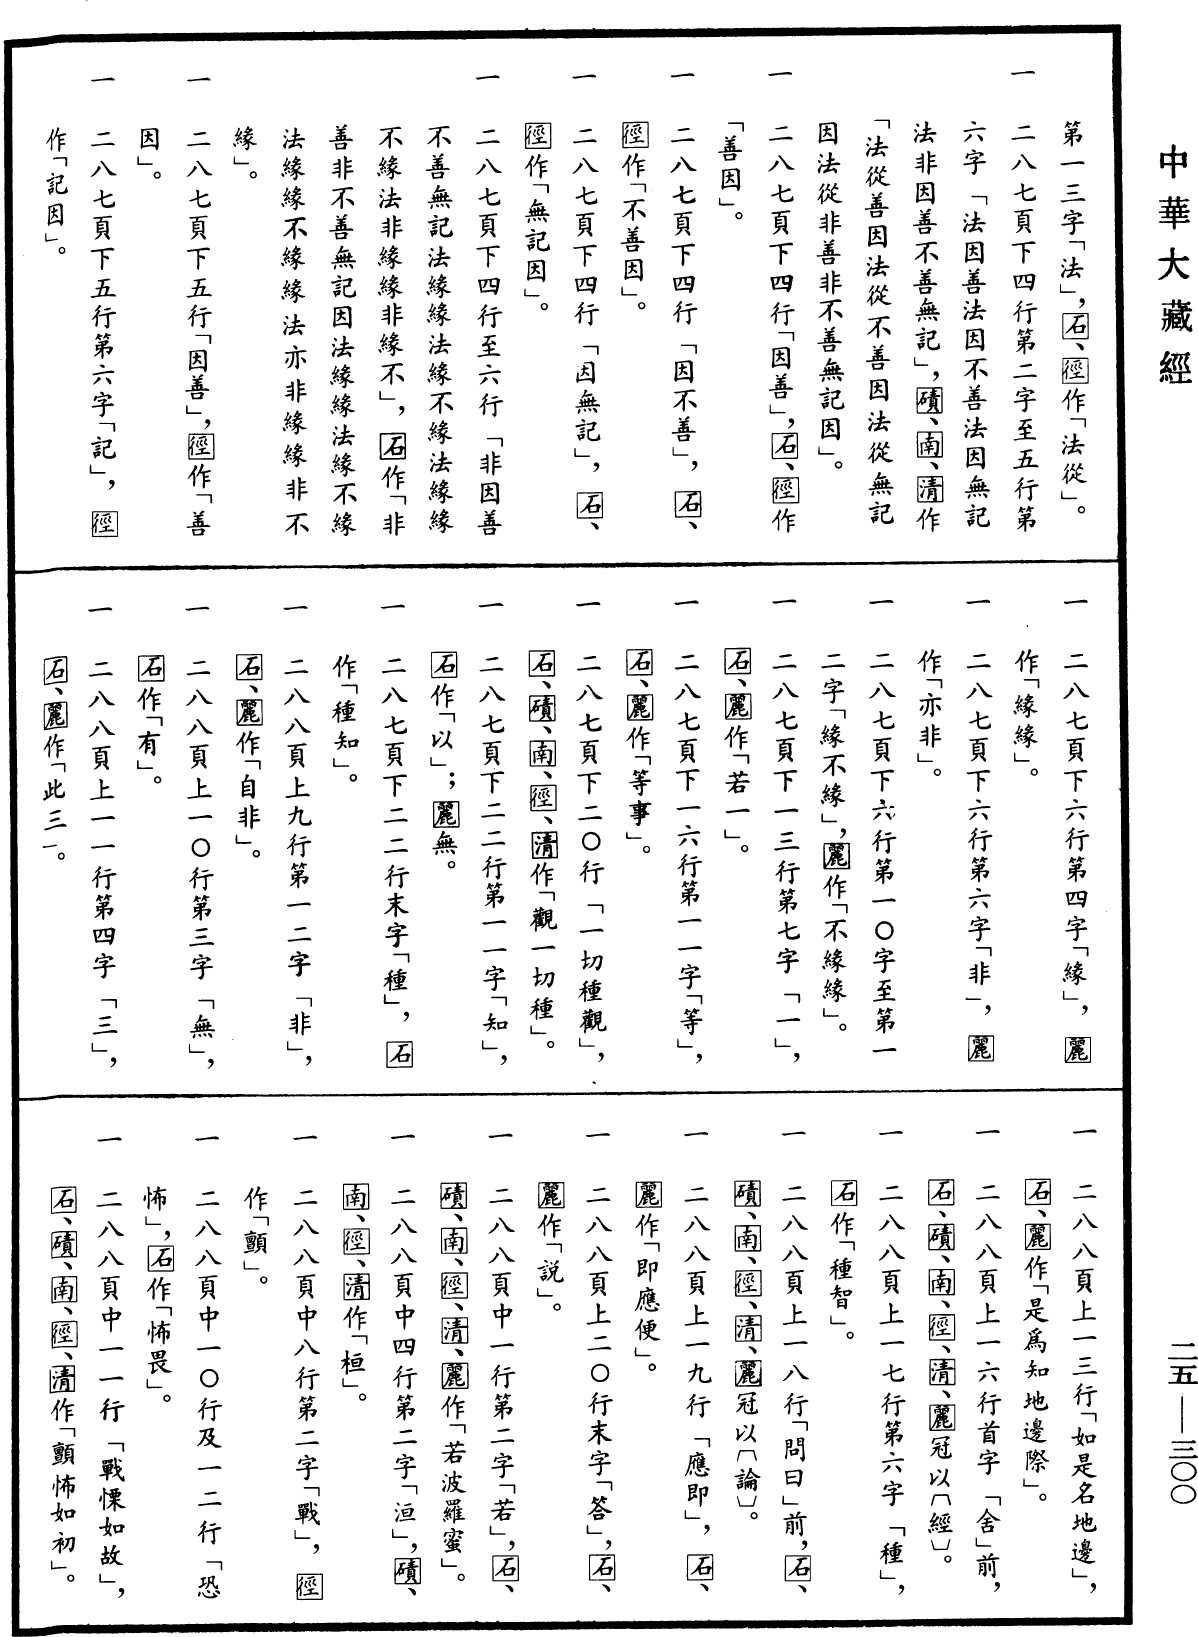 中華大藏經
二五—三〇〇
第一三字「法」，石、徑作「法從」。
一　二八七頁下四行第二字至五行第
六字「法因善法因不善法因無記
法非因善不善無記」，磧、南、清作
「法從善因法從不善因法從無記
因法從非善非不善無記因」。
一　二八七頁下四行「因善」，石、徑作
「善因」。
一　二八七頁下四行「因不善」，石、
徑作「不善因」。
一　二八七頁下四行「因無記」，石、
徑作「無記因」。
一　二八七頁下四行至六行「非因善
不善無記法緣緣法緣不緣法緣緣
不緣法非緣緣非緣不」，石作「非
善非不善無記因法緣緣法緣不緣
法緣緣不緣緣法亦非緣緣非不
緣」。
一　二八七頁下五行「因善」，徑作「善
因」。
一　二八七頁下五行第六字「記」，徑
作「記因」。
一　二八七頁下六行第四字「緣」，麗
作「緣緣」。
一　二八七頁下六行第六字「非」，麗
作「亦非」。
一　二八七頁下六行第一〇字至第一
二字「緣不緣」，麗作「不緣緣」。
一　二八七頁下一三行第七字「一」，
石、麗作「若一」。
一　二八七頁下一六行第一一字「等」，
石、麗作「等事」。
一　二八七頁下二〇行「一切種觀」，
石、磧、南、徑、清作「觀一切種」。
一　二八七頁下二二行第一一字「知」，
石作「以」；麗無。
一　二八七頁下二二行末字「種」，石
作「種知」。
一　二八八頁上九行第一二字「非」，
石、麗作「自非」。
一　二八八頁上一〇行第三字「無」，
石作「有」。
一　二八八頁上一一行第四字「三」，
石、麗作「此三」。
一　二八八頁上一三行「如是名地邊」，
石、麗作「是爲知地邊際」。
一　二八八頁上一六行首字「舍」前，
石、磧、南、徑、清、麗冠以〔經〕。
一　二八八頁上一七行第六字「種」，
石作「種智」。
一　二八八頁上一八行「問曰」前，石、
磧、南、徑、清、麗冠以〔論〕。
一　二八八頁上一九行「應即」，石、
麗作「即應便」。
一　二八八頁上二〇行末字「答」，石、
麗作「説」。
一　二八八頁中一行第二字「若」，石、
磧、南、徑、清、麗作「若波羅蜜」。
一　二八八頁中四行第二字「洹」，磧、
南、徑、清作「桓」。
一　二八八頁中八行第二字「戰」，徑
作「顫」。
一　二八八頁中一〇行及一二行「恐
怖」，石作「怖畏」。
一　二八八頁中一一行「戰慄如故」，
石、磧、南、徑、清作「顫怖如初」。